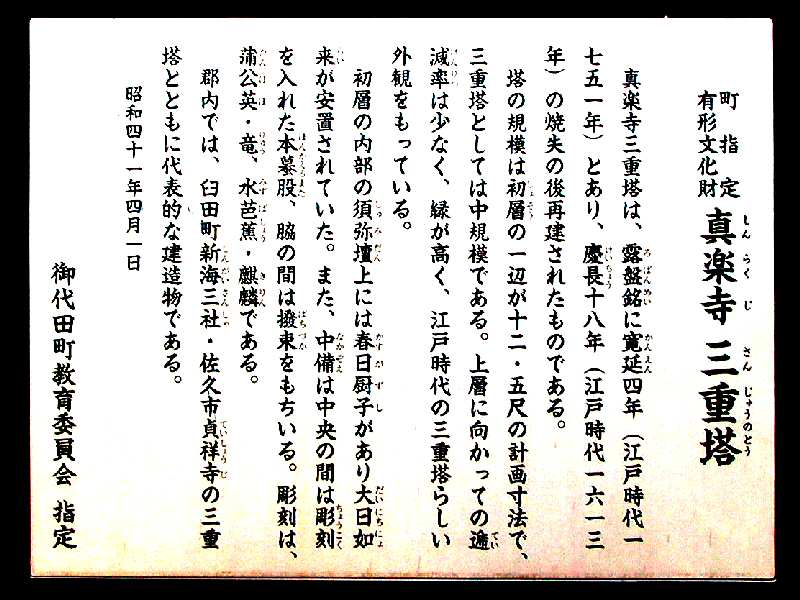 町指定
有形文化財
真楽寺 三重塔
真楽寺三重塔は、露盤銘に寛延四年（江戸時代一
七五一年）とあり、慶長十八年（江戸時代一六一三
年）の焼失の後再建されたものである。
塔の規模は初層の一辺が十二・五尺の計画寸法で、
三重塔としては中規模である。上層に向かっての逓
減率は少なく、縁が高く、江戸時代の三重塔らしい
外観をもっている。
初層の内部の須弥壇上には春日厨子があり大日如
来が安置されていた。また、中備は中央の間は彫刻
を入れた本蟇股、脇の間は撥束をもちいる。彫刻は、
蒲公英・竜、水芭蕉・麒麟である。
郡内では、臼田町新海三社・佐久市貞祥寺の三重
塔とともに代表的な建造物である。
昭和四十一年四月一日
御代田町教育委員会 指定